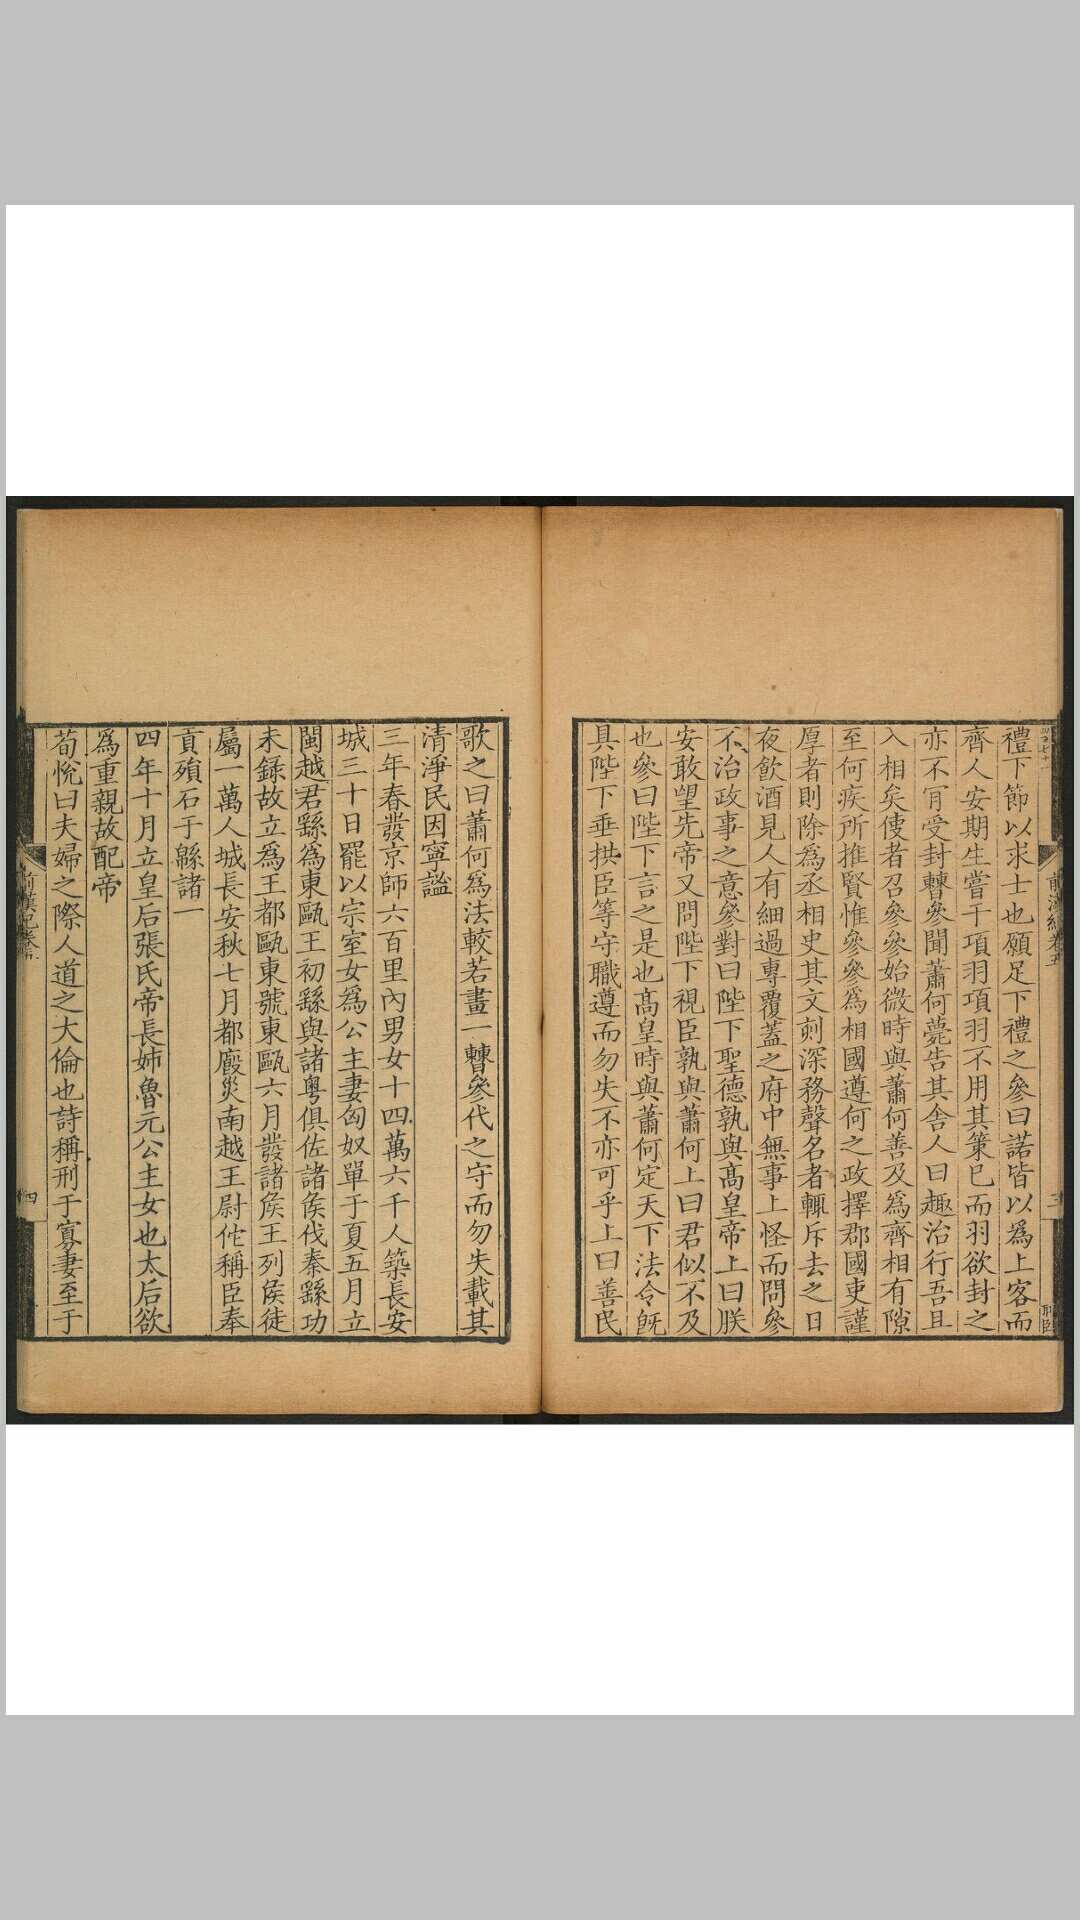 前漢紀卷五
禮下節以求士也願足下禮之參曰諾皆以爲上客而
齊人安期生嘗干項羽項羽不用其策已而羽欲封之
亦不肎受封轊參聞蕭何薨告其舍人曰趣治行吾且
入相矣使者召參參始微時與蕭何善及爲齊相有隙
至何疾所推賢惟參參爲相國遵何之政擇郡國吏謹
厚者則除爲丞相史其文刻深務聲名者輒斥去之日
夜飲酒見人有細過專覆蓋之府中無事上怪而問參
不治政事之意參對曰陛下聖德孰與髙皇帝上曰朕
安敢望先帝又問陛下視臣孰與蕭何上曰君似不及
也參曰陛下言之是也髙皇時與蕭何定天下法令旣
具陛下垂拱臣等守職遵而勿失不亦可乎上曰善民
歌之曰蕭何爲法較若畫一轊參代之守而勿失載其
清淨民因寧謐
三年春發京師六百里內男女十四萬六千人築長安
城三十日罷以宗室女爲公主妻匈奴單于夏五月立
閩越君繇爲東甌王初繇與諸粤俱佐諸矦伐秦繇功
未録故立爲王都甌東號東甌六月發諸矦王列矦徒
屬一萬人城長安秋七月都廐災南越王尉佗稱臣奉
貢殞石于緜諸一
四年十月立皇后張氏帝長姊魯元公主女也太后欲
爲重親故配帝
荀悅曰夫婦之際人道之大倫也詩稱刑于寡妻至于
前漢紀卷五
四